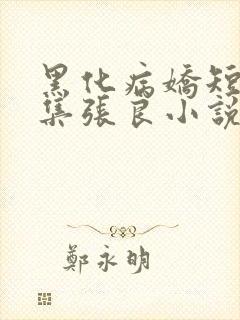 黑化病嬌短
集張良小說
鄭永明